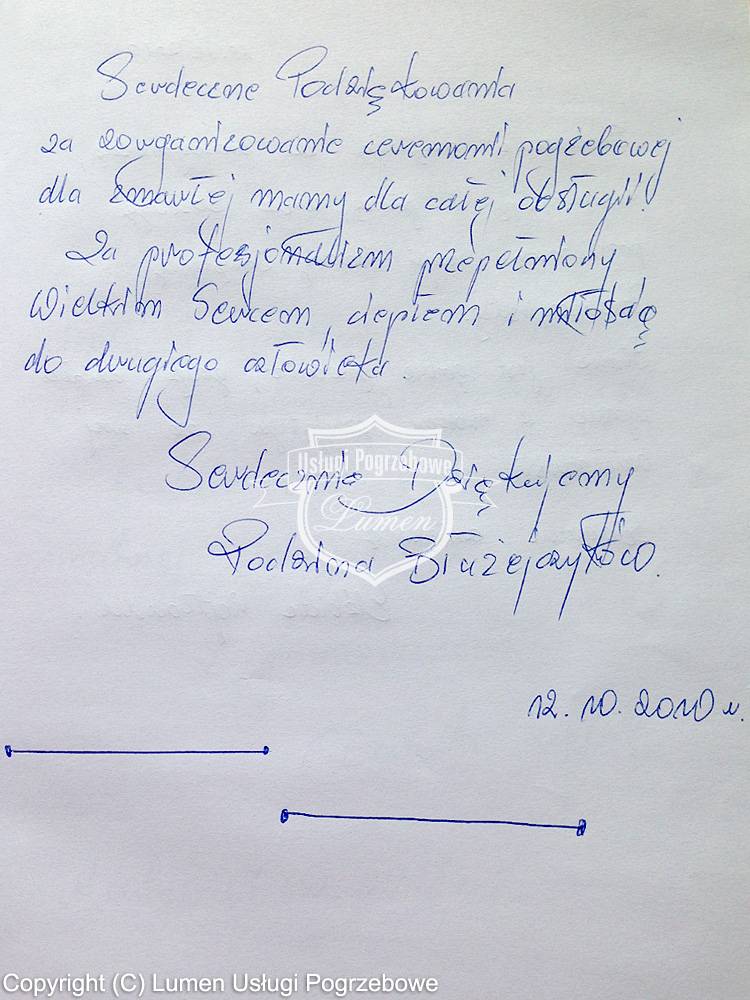 Serdeczne Podziękowania
za zorganizowanie ceremonii pogżebowej
dla zmarłej mamy dla całej obsługii!
Za profesjonalizm przepełniony
Wielkim Sercem, ciepłem i miłością
do drugiego człowieka.
Usługi Pogrzebowe
Serdecznie Dziękujemy
Lumen
Rodzina
12.10.2010 r.
Copyright (C) Lumen Usługi Pogrzebowe